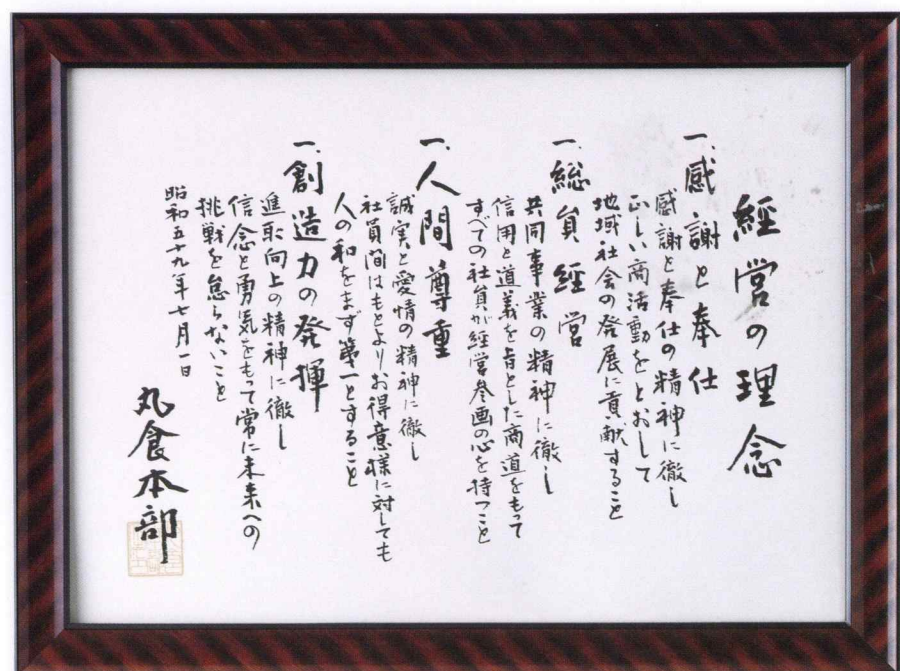 経営の理念
一、感謝と奉仕
感謝と奉仕の精神に徹し
正しい商活動をとおして
地域社会の発展に貢献すること
一、総員経営
共同事業の精神に徹し
信用と道義を旨とした商道をもって
すべての社員が経営参画の心を持つこと
一、人間尊重
誠実と愛情の精神に徹し
社員間はもとよりお得意様に対しても
人の和をまず第一とすること
一、創造力の発揮
進取向上の精神に徹し
信念と勇気をもって常に未来への
挑戦を怠らないこと
昭和五十九年七月一日
丸食本部